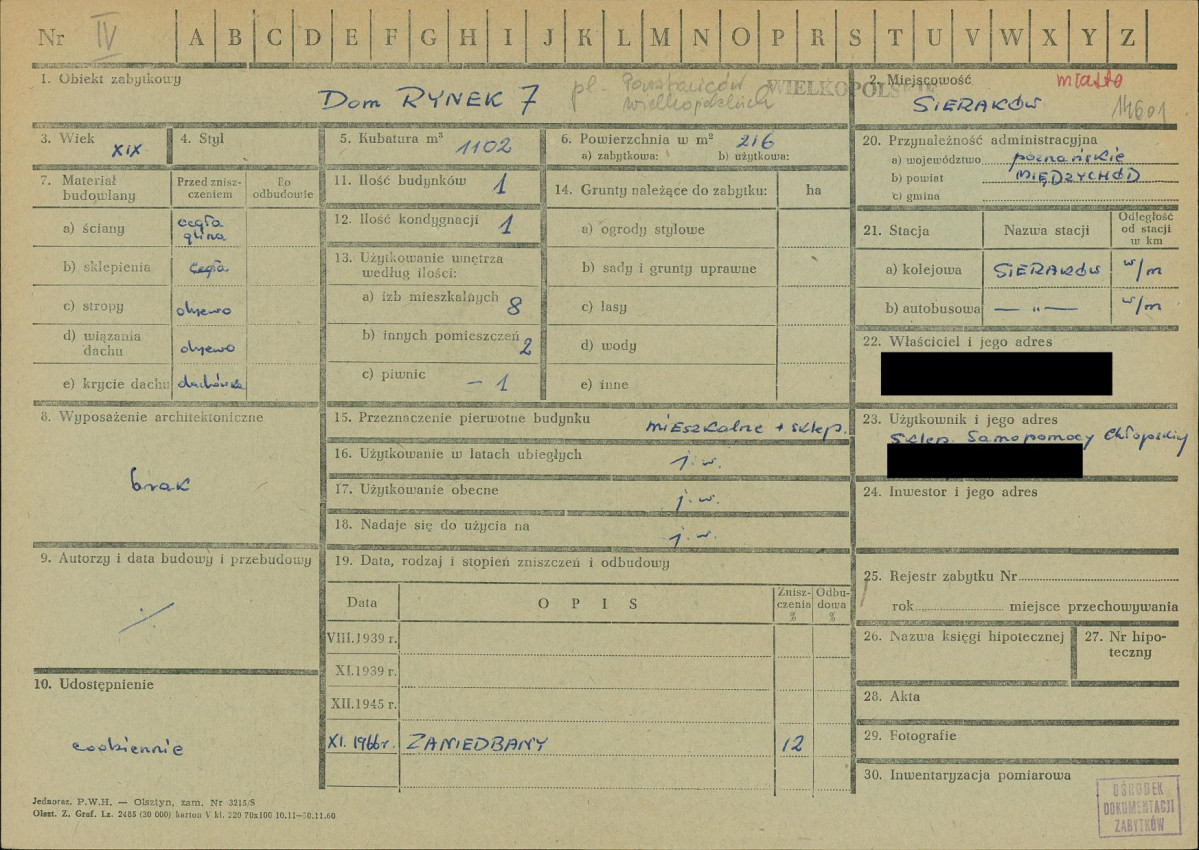 Nr IV A B C D E F G H I J K L M N O P R S T U V W X Y Z
1. Obiekt zabytkowy
Dom RYNEK 7
pl. Powstańców
wielkopolskich
WIELKOPOLSKIE
2. Miejscowość
miasto
SIERAKÓW
14601
3. Wiek XIX
4. Styl
5. Kubatura m³ 1102
6. Powierzchnia w m² 216
a) zabytkowa: b) użytkowa:
20. Przynależność administracyjna
a) województwo poznańskie
b) powiat MIĘDZYCHÓD
c) gmina
7. Materiał budowlany
Przed zniszczeniem
Po odbudowie
a) ściany cegła
glina
b) sklepienia cegła
c) stropy drzewo
d) wiązania dachu drzewo
e) krycie dachu dachówka
11. Ilość budynków 1
12. Ilość kondygnacji 1
13. Użytkowanie wnętrza
według ilości:
a) izb mieszkalnych 8
b) innych pomieszczeń 2
c) piwnic – 1
14. Grunty należące do zabytku: ha
a) ogrody stylowe
b) sady i grunty uprawne
c) lasy
d) wody
e) inne
21. Stacja Nazwa stacji Odległość od stacji w km
a) kolejowa SIERAKÓW w/m
b) autobusowa — " — w/m
22. Właściciel i jego adres
8. Wyposażenie architektoniczne
brak
15. Przeznaczenie pierwotne budynku mieszkalne + sklep.
16. Użytkowanie w latach ubiegłych j.w.
17. Użytkowanie obecne j.w.
18. Nadaje się do użycia na j.w.
23. Użytkownik i jego adres
Sklep. Samopomocy Chłopskiej
24. Inwestor i jego adres
9. Autorzy i data budowy i przebudowy
19. Data, rodzaj i stopień zniszczeń i odbudowy
Data O P I S Zniszczenia % Odbudowa %
VIII.1939 r.
XI.1939 r.
XII.1945 r.
XI. 1966 r. ZANIEDBANY 12
25. Rejestr zabytku Nr
rok miejsce przechowywania
26. Nazwa księgi hipotecznej
27. Nr hipoteczny
10. Udostępnienie
codziennie
28. Akta
29. Fotografie
30. Inwentaryzacja pomiarowa
Jednoraz. P.W.H. — Olsztyn, zam. Nr 3215/S
Olszt. Z. Graf. Lz. 2485 (30 000) karton V kl. 220 70x100 10.11—30.11.60
OŚRODEK
DOKUMENTACJI
ZABYTKÓW